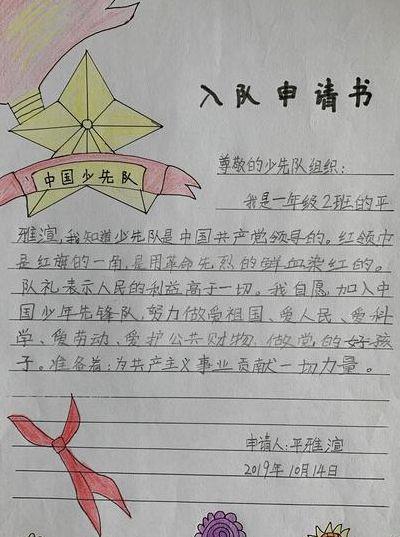 中国少先队
入队申请书
尊敬的少先队组织：
我是一年级2班的平
雅渲，我知道少先队是中国共产党领导的。红领巾
是红旗的一角，是用革命先烈的鲜血染红的。
队礼表示人民的利益高于一切。我自愿加入中
国少年先锋队，努力做爱祖国、爱人民、爱科
学、爱劳动、爱护公共财物，做党的好孩
子。准备着：为共产主义事业贡献一切力量。
申请人：平雅渲
2019年10月14日